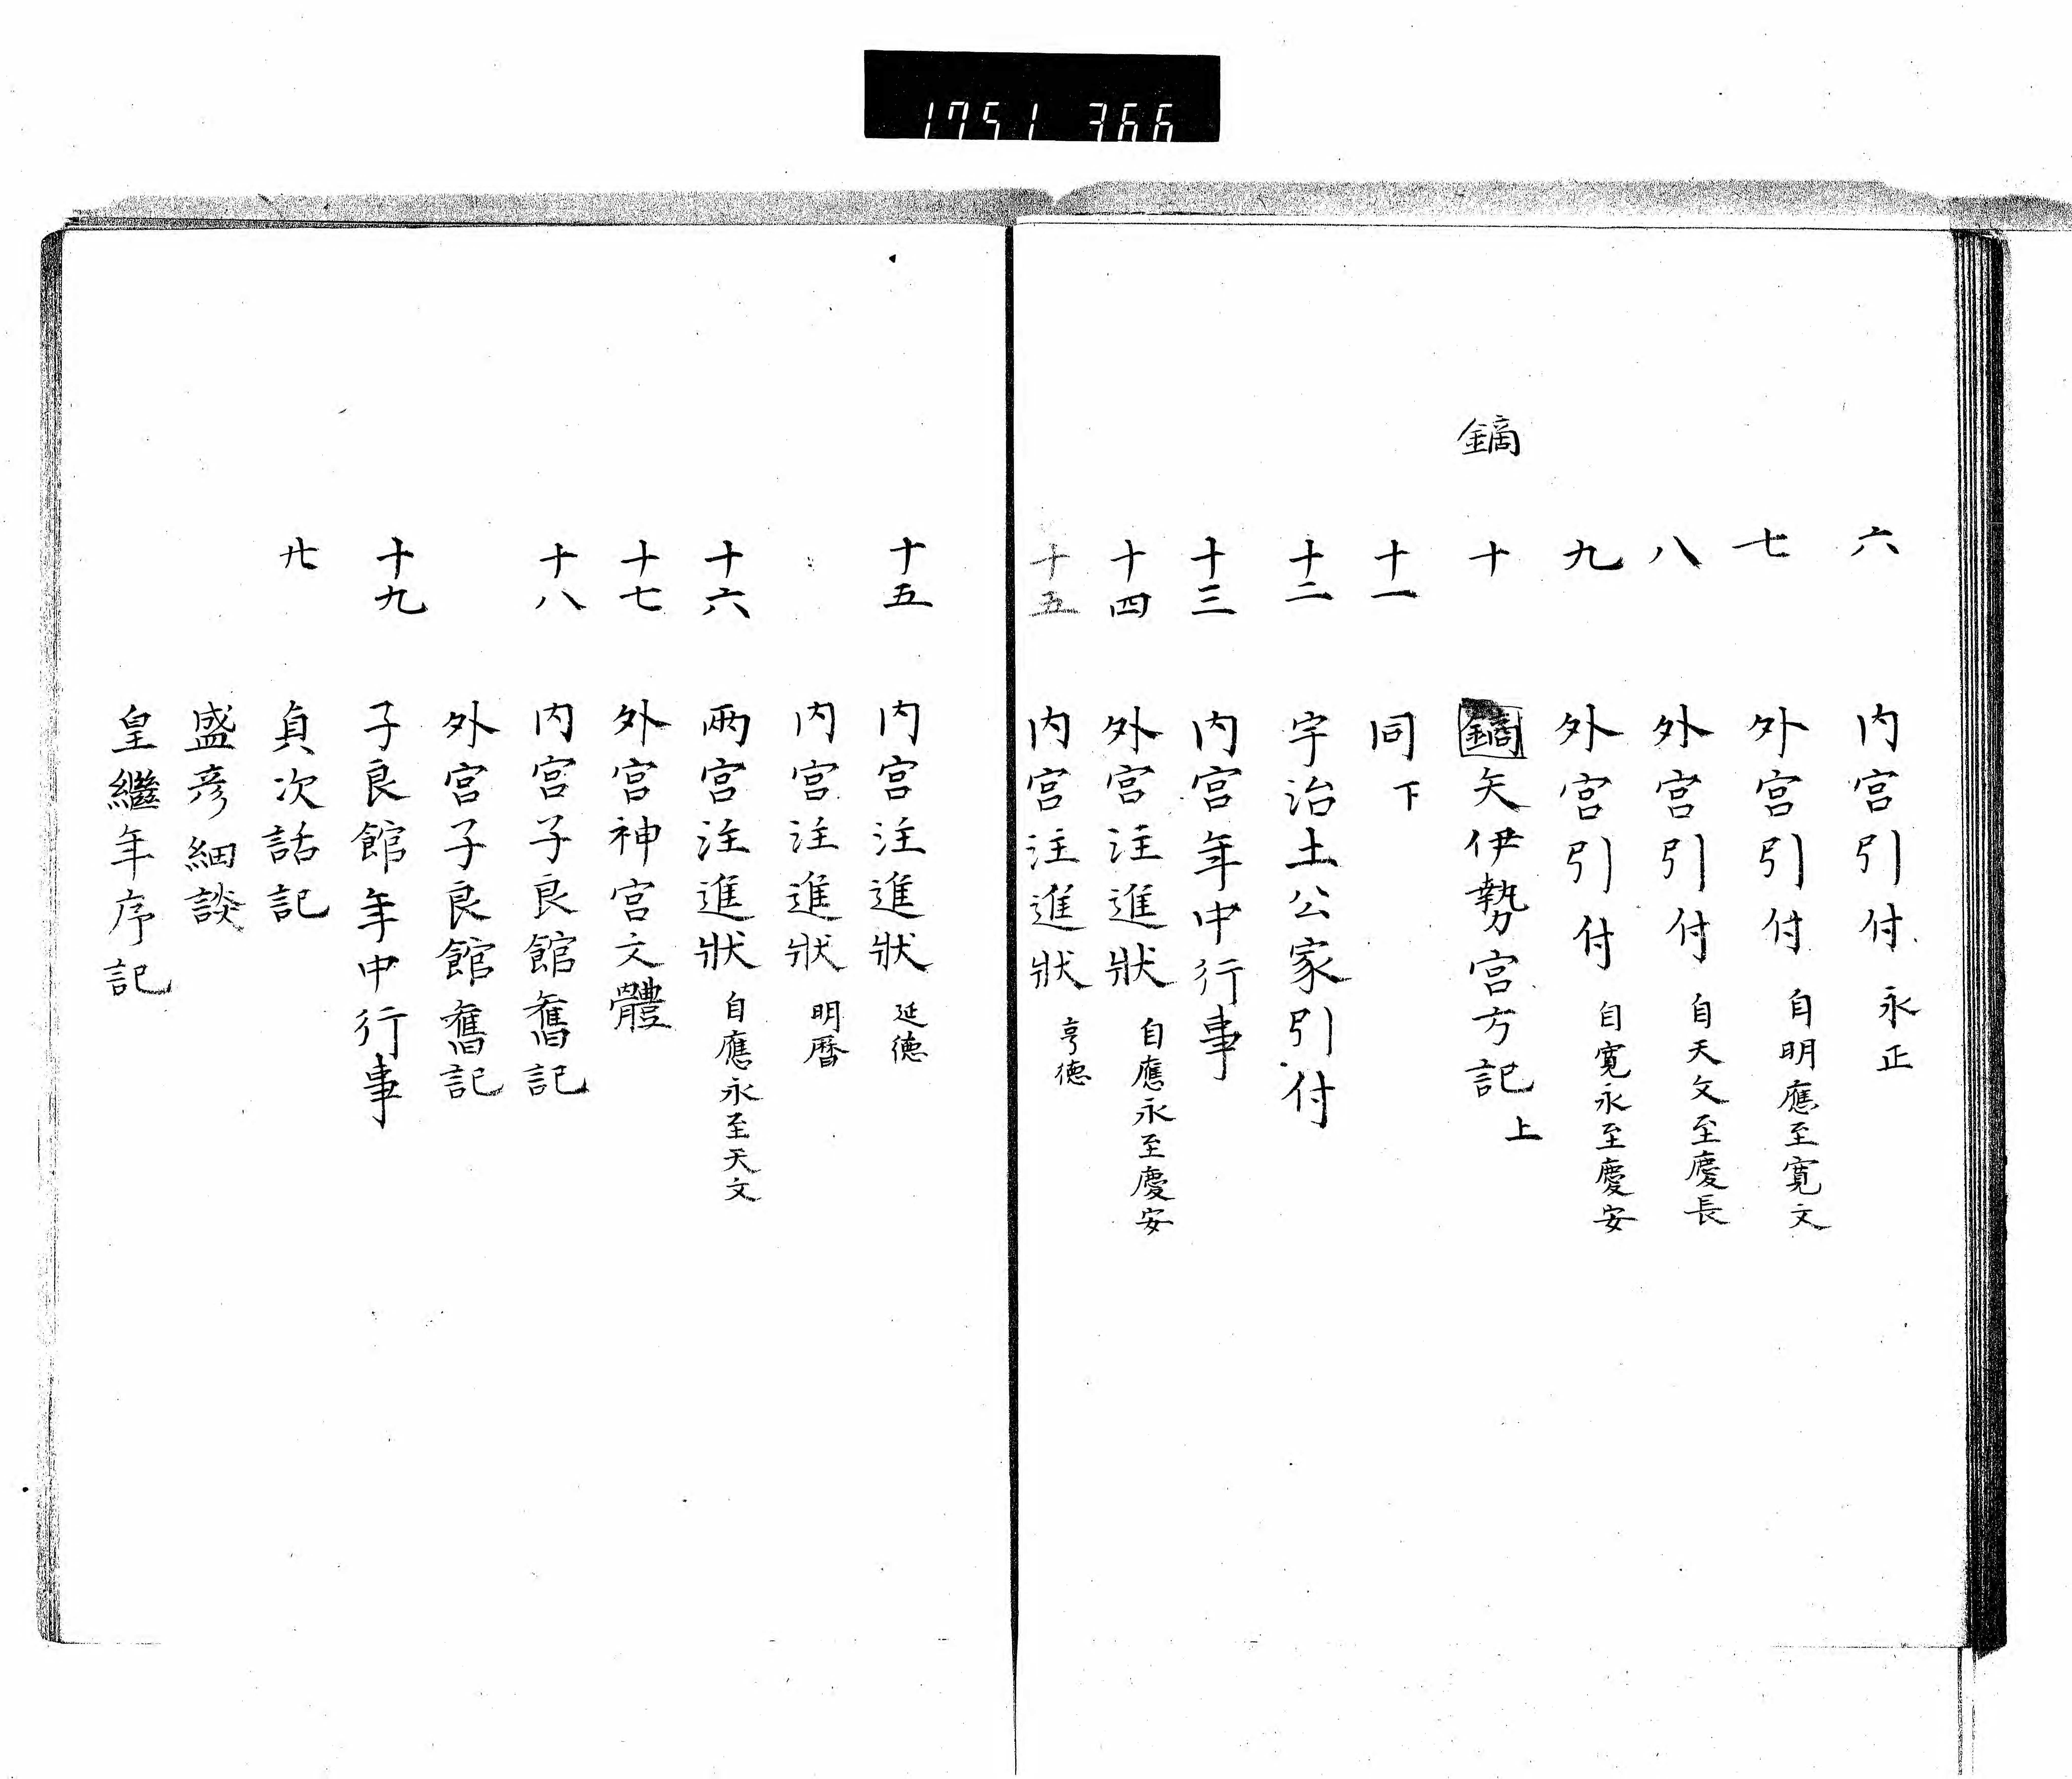 1751 366
六 内宮引付 永正
七 外宮引付 自明應至寛文
八 外宮引付 自天文至慶長
九 外宮引付 自寛永至慶安
鏑
十 鏑矢伊勢宮方記 上
十一 同 下
十二 宇治土公家引付
十三 内宮年中行事
十四 外宮注進狀 自應永至慶安
十五 内宮注進狀 亨徳
十五 内宮注進狀 延徳
内宮注進狀 明曆
十六 兩宮注進狀 自應永至天文
十七 外宮神宮文體
十八 内宮子良館舊記
外宮子良館舊記
十九 子良館年中行事
廿 貞次話記
盛彦細談
皇繼年序記